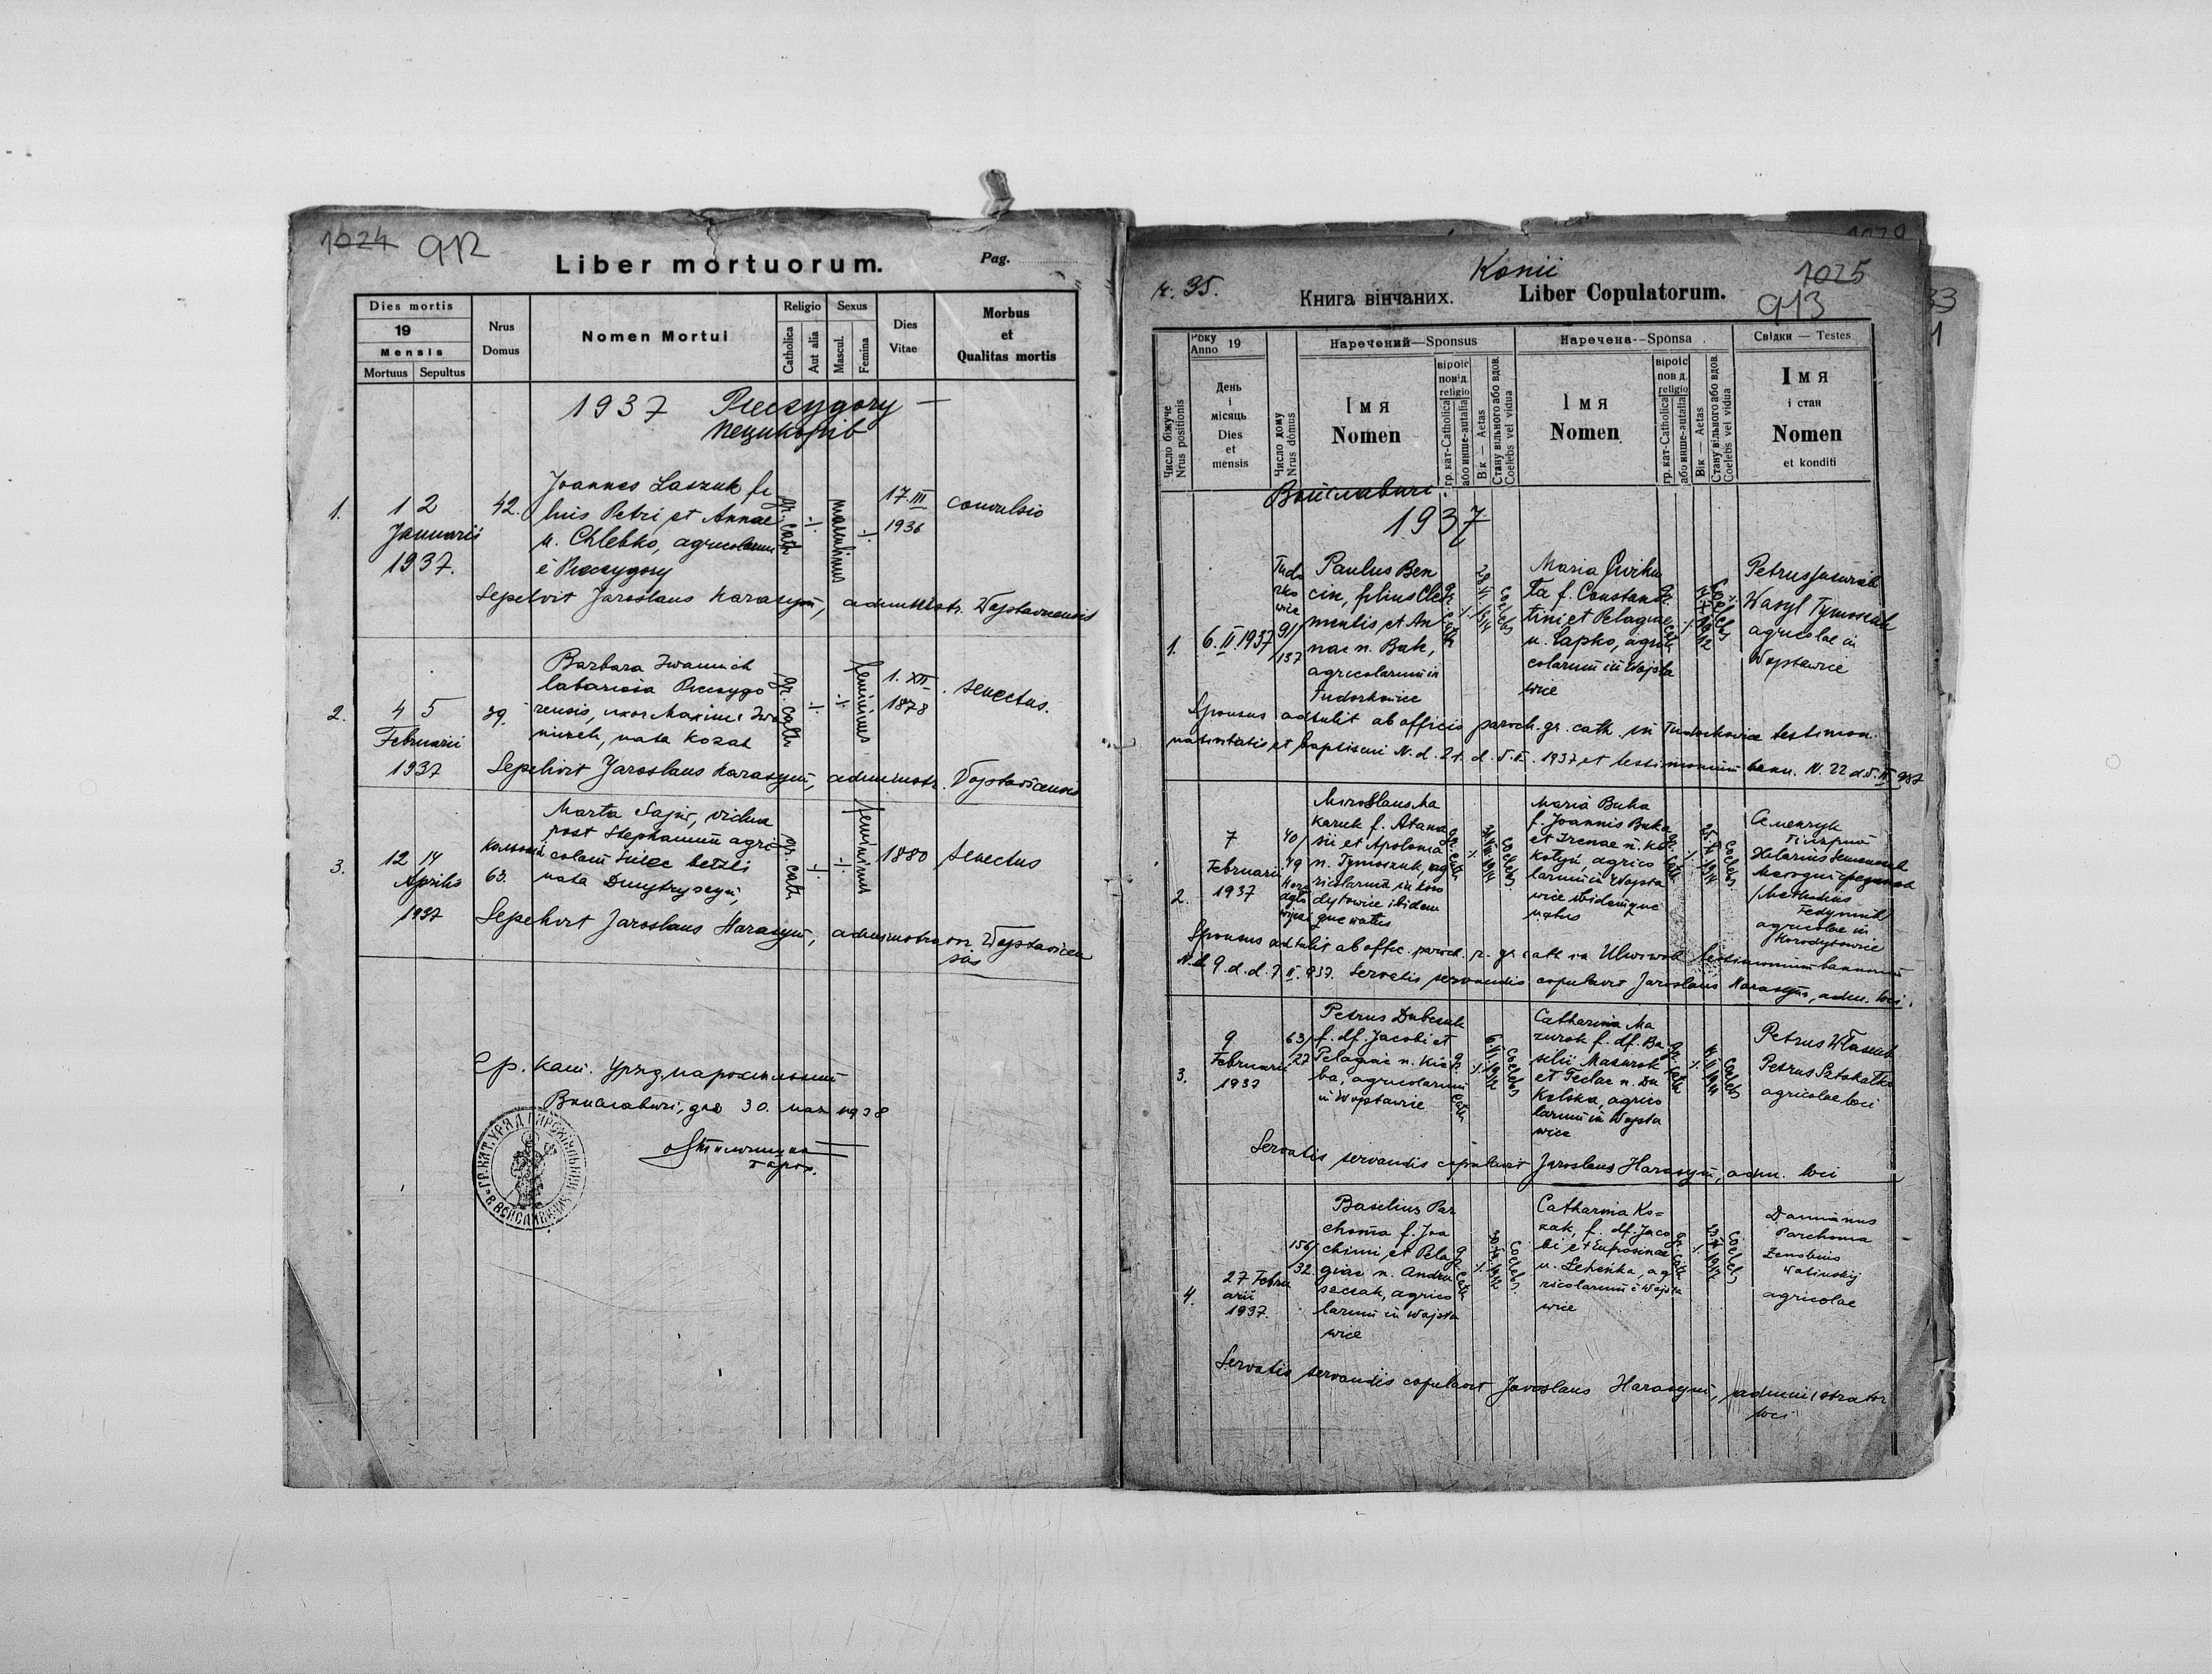 1024 912
Liber mortuorum.
Pag.
Dies mortis
19
Mensis
Mortuus Sepultus
Nrus
Domus
Nomen Mortui
Religio
Catholica
Aut alia
Sexus
Mascul.
Femina
Dies
Vitae
Morbus
et
Qualitas mortis
1937 Pieczygory —
Пециқорів
1.
1 2
Januarii
1937.
42.
Joannes Laszuk fi
lius Petri et Annae
n. Chlebko, agricolarum
è Pieczygory
gr. cath
masculinus
17.III
1936
convulsio
Sepelivit Jaroslaus Harasym, administr. Wojslavicensis
2.
4 5
Februarii
1937
39.
Barbara Iwanuch
labariosa Pieczygo
rensis, uxor Maximi Iwa
niuch, nata Kozak
gr. cath
femininus
1. XII
1878
senectus.
Sepelivit Jaroslaus Harasym, administr. Wojslavicensis
3.
12 14
Aprilis
1937
63.
Marta Sajur, vidua
post Stephanum agri
colam
nata Dmytryszyn,
gr. cath
femininus
1880
senectus
Sepelivit Jaroslaus Harasym, administrator Wojslavicen
sis
Гр. кат. Уряд парохіяльний
Войславичі, дня 30. мая 1938
парох.
ГР. КАТ. УРЯД ПАРОХІЯЛЬНИЙ В ВОЙСЛАВИЧАХ
ч. 35.
Konii
1025
913
Книга вінчаних. Liber Copulatorum.
Число біжуче
Nrus positionis
Року
Anno 19
День
і
місяць
Dies
et
mensis
Число дому
Nrus domus
Наречений—Sponsus
Імя
Nomen
віроіс
повід.
religio
гр. кат-Catholica
або инше-autalia
Вік — Aetas
Стану вільного або вдов.
Coelebs vel vidua
Наречена--Sponsa
Імя
Nomen
віроіс
повд.
religio
гр. кат-Catholica
або инше-autalia
Вік — Aetas
Стану вільного або вдов.
Coelebs vel vidua
Свідки — Testes
Імя
і стан
Nomen
et konditi
Войславичі.
1937
1.
6.II.1937
Tudo
rko
wice
91/
137
Paulus Ben
cin, filius Cle
mentis et An
nae n. Buk,
agricolarum in
Tudorkowice
gr. cath
28.VI.1914
Coelebs
Maria Cwiku
ła f. Constan
tini et Pelagiae
n. Łapko, agri
colarum in Wojsła
wice
gr. cath
Coelebs
Petrus
Wasyl Tymoszuk
agricolae in
Wojsławice
Sponsus adtulit ab officio paroch. gr. cath. in Tudorkowice testimon.
nativitatis et baptismi N. d. 21. d. 5.II. 1937 et testimonium bann. N. 22 d. 5.II. 937
2.
7
Februarii
1937
40/
49
Miroslaus Ma
karuk f. Atana
sii et Apolonia
n. Tymoszuk, ag
ricolarum in Koro
dytowice ibidem
que natus
gr. cath
Coelebs
Maria Buka
f. Joannis Buka
et Irenae n. Ko
kotyn, agrico
larum in Wojsła
wice ibidemque
natus
gr. cath
Coelebs
Семенюк
Гіляріян
Hilarius Semeniuk
Методий Фединяк
(Methodius
Fedyniuk)
agricolae in
Korodytowice
Sponsus adtulit ab offic. paroch. r. gr. cath in Uhrinów testimonium bannorum
N.d. 9. d. d. 7.II.937. Servatis servandis copulavit Jaroslaus Harasym, adm. loci.
3.
9
Februarii
1937
63/
27
Petrus Dubczuk
f. df. Jacobi et
Pelagiae n. Kie
ba, agricolarum
in Wojsławice
gr. cath
Coelebs
Catharina Ma
zurok f. df. Ba
silii Mazurok
et Teclae n. Du
Kelska, agrico
larum in Wojsła
wice
gr. cath
Coelebs
Petrus Własiuk
Petrus Sztokałko
agricolae loci
Servatis servandis copulavit Jaroslaus Harasym, adm. loci
4.
27 Febru
arii
1937.
156/
32.
Basilius Par
choma f. Joa
chimi et Pela
giae n. Andru
seczak, agrico
larum in Wojsła
wice
gr. cath
Coelebs
Catharina Ko=
zak, f. df. Jaco
bi et Eufrosinae
n. Leheńka, ag
ricolarum è Wojsła
wice
gr. cath
Coelebs
Damianus
Parchoma
Zenobius
Watinskij
agricolae
Servatis servandis copulavit Jaroslaus Harasym, administrator
loci